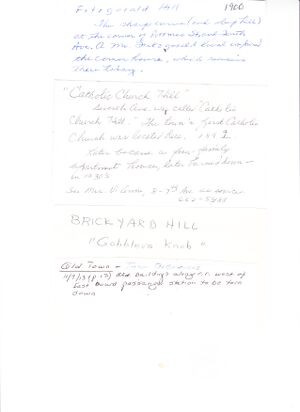 Fitzgerald Hill 1900
The sharp curve (and steep hill)
at the corner of Street South
Ave. A Mr. Fitzgerald lived in
the corner house, which remains
there today.
"Catholic Church Hill"
Seventh Ave. was called "Catholic
Church Hill." The town's first Catholic
Church was located here. 1892
Later became a four-family
apartment house, later burned down
in
See Mrs. 8-7th Ave
BRICKYARD HILL
"Gobblers Knob"
Old Town -
11/9/13 (p.17) Old buildings along r.r. west of
East bound passenger station to be torn
down